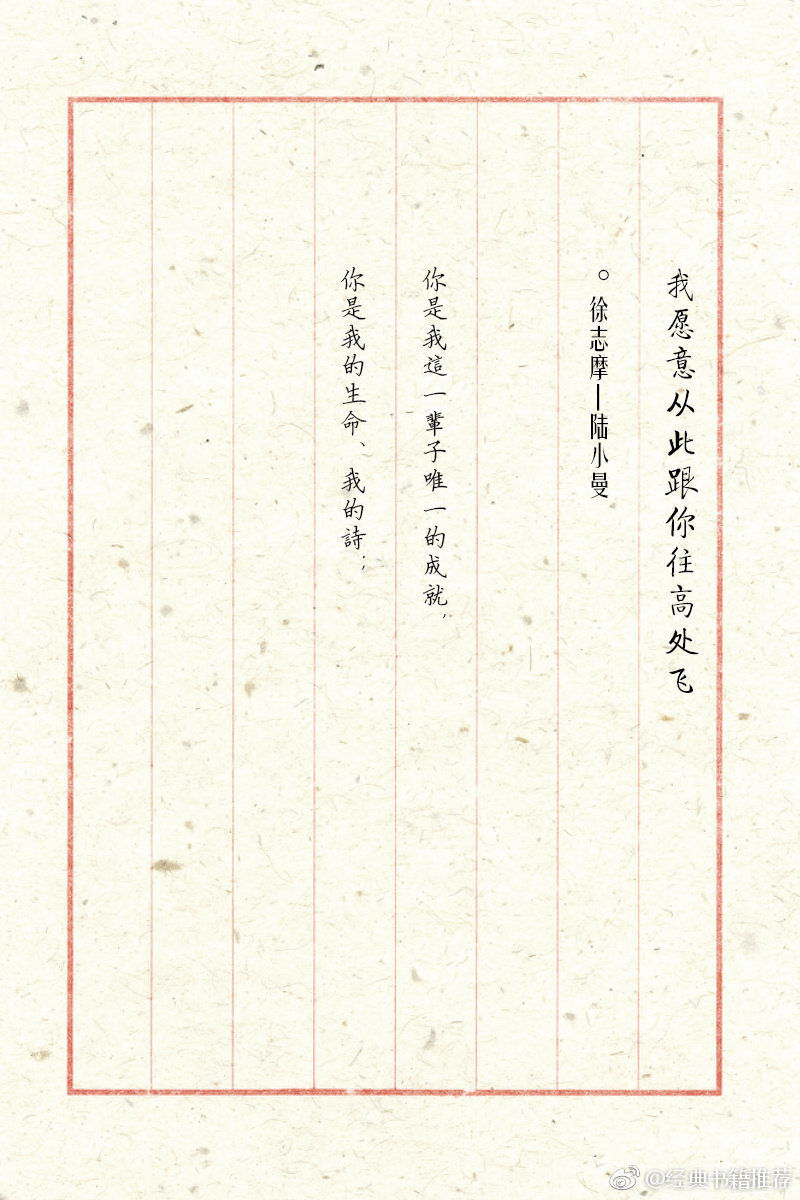 我愿意从此跟你往高处飞
○徐志摩—陆小曼
你是我這一輩子唯一的成就，
你是我的生命、我的詩；
@经典书籍推荐